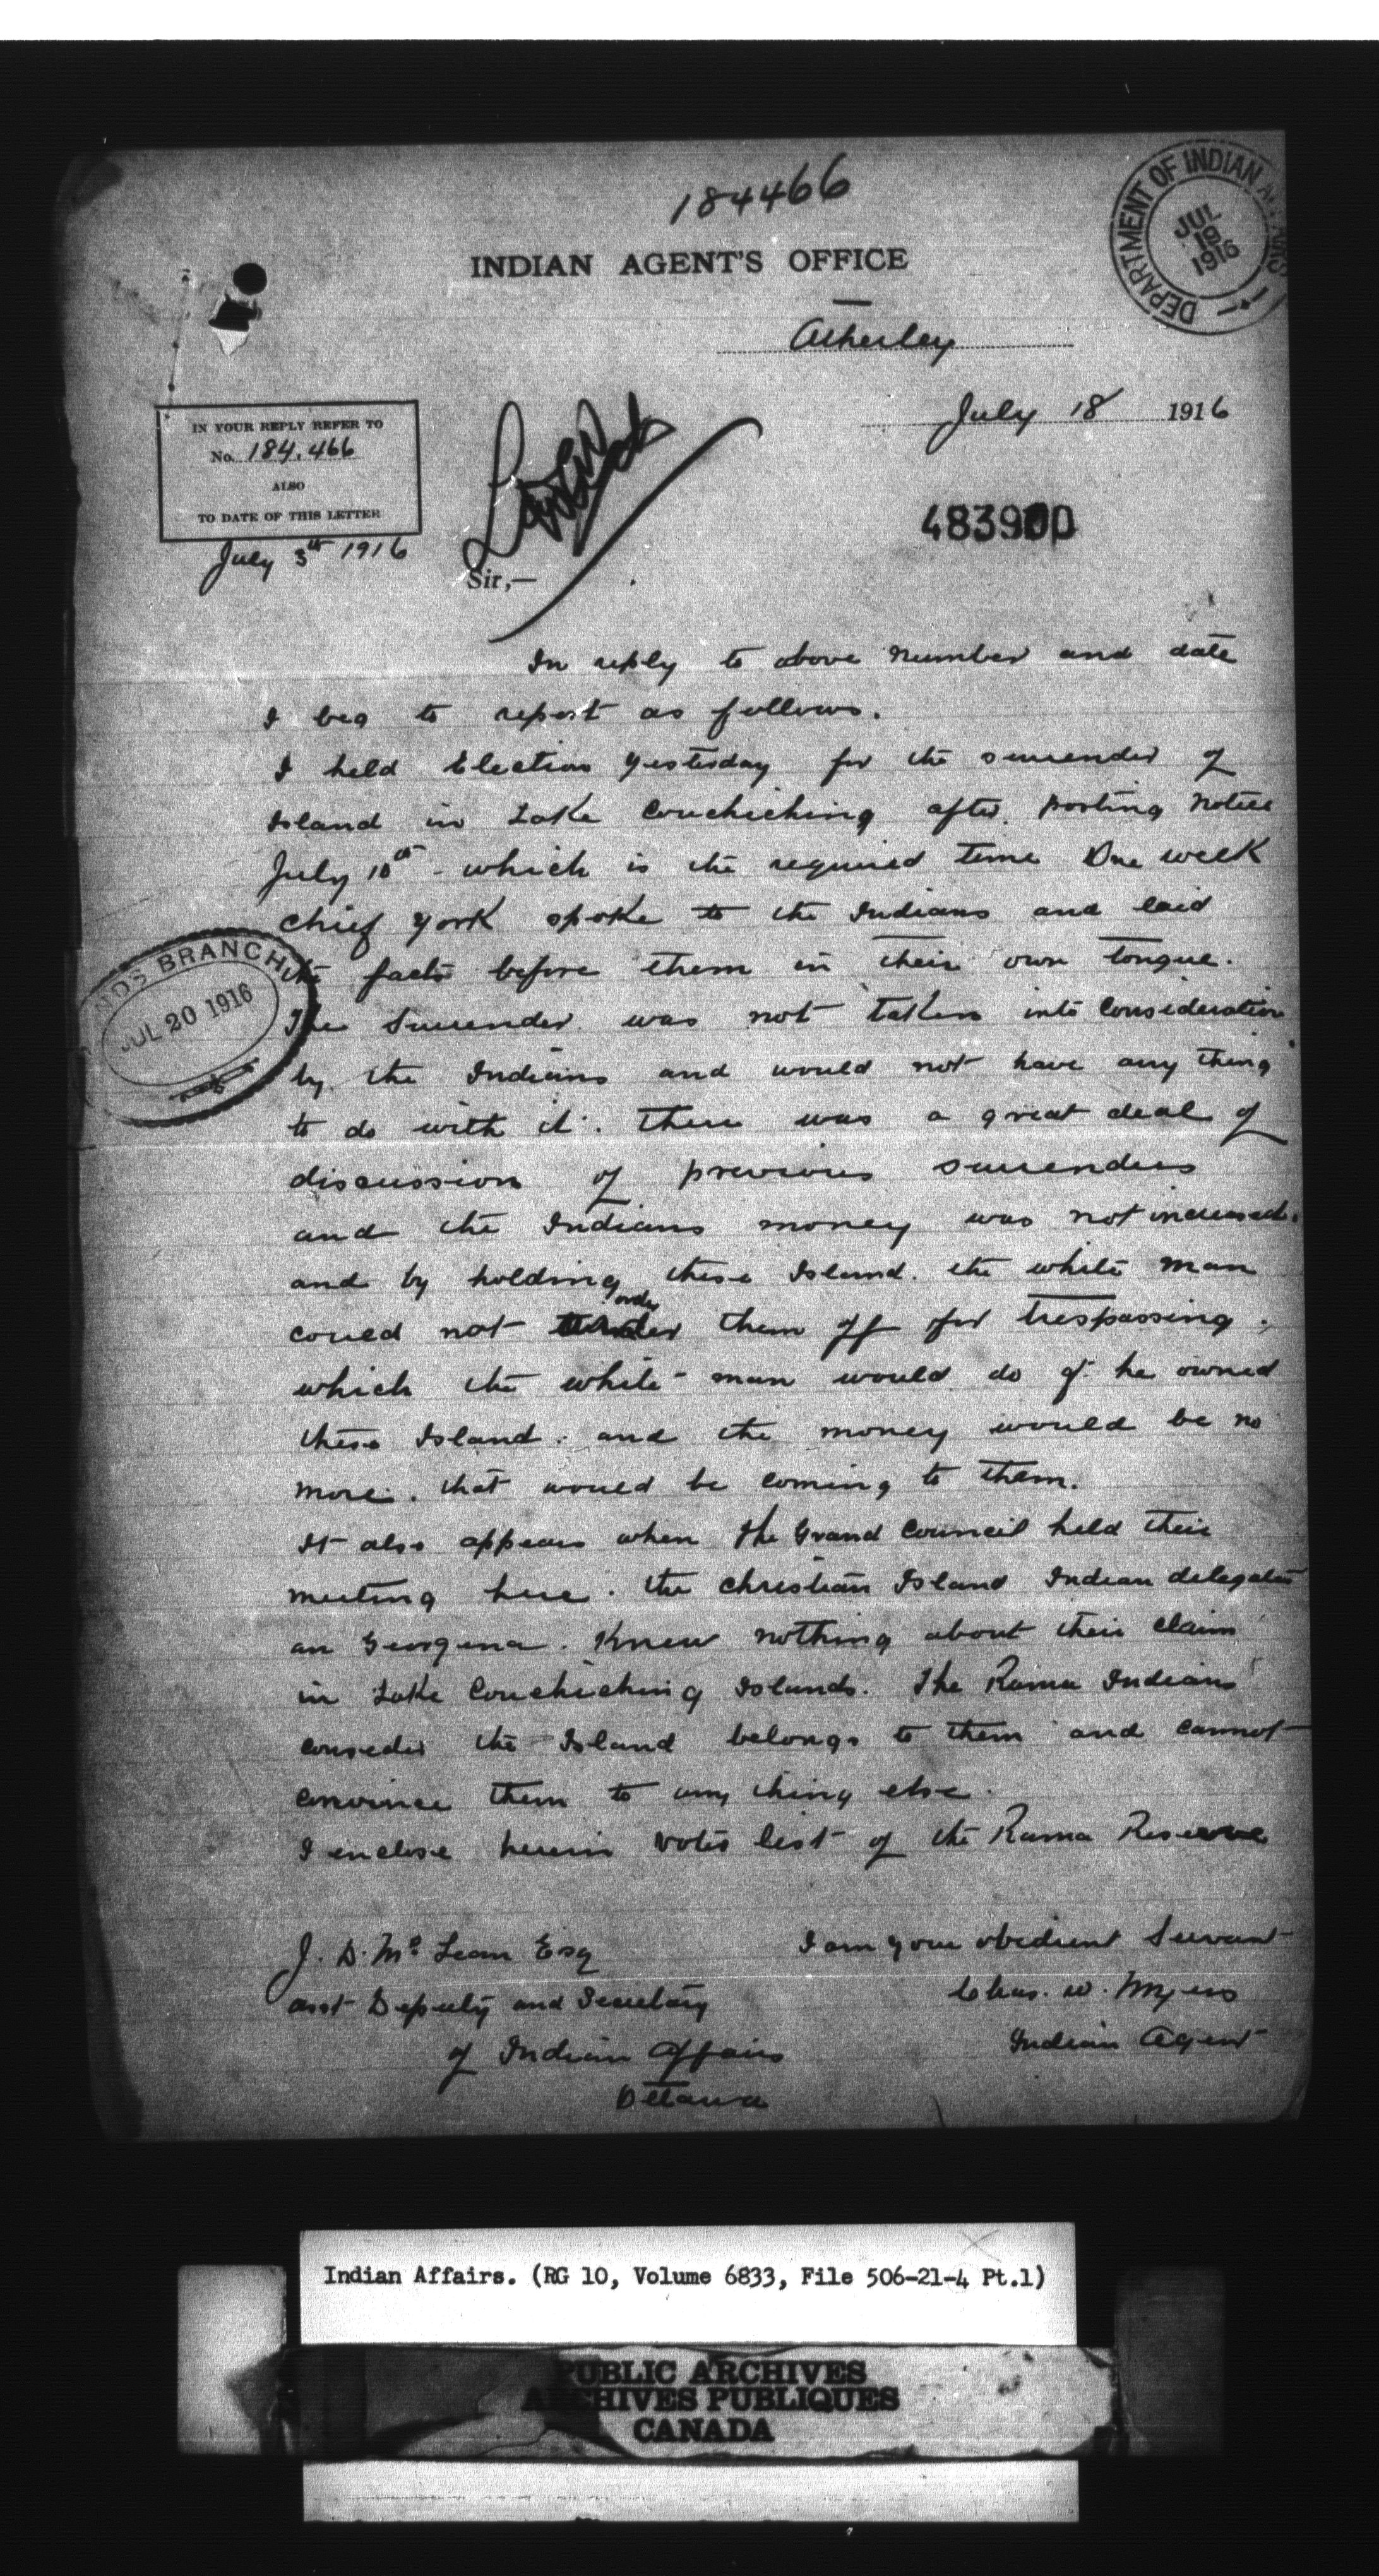 184466
DEPARTMENT OF INDIAN AFFAIRS
JUL
19
1916
INDIAN AGENT'S OFFICE
Atherley
July 18 1916
IN YOUR REPLY REFER TO
No. 184.466
ALSO
TO DATE OF THIS LETTER
July 3rd 1916
483900
Sir,—
In reply to above number and date
I beg to report as follows.
I held Election yesterday for the surrender of
Island in Lake Couchiching after posting notice
July 10th - which is the required time One week
Chief York spoke to the Indians and laid
the facts before them in their own tongue.
The Surrender was not taken into Consideration
by the Indians and would not have any thing
to do with it. There was a great deal of
discussion of previous surrenders
and the Indians money was not increased.
and by holding these Island. the white man
could not order them off for trespassing.
which the white man would do if he owned
these Island. and the money would be no
more. that would be coming to them.
It also appears when the Grand Council held their
meeting here. the Christian Island Indian delegates
an Georgina. Knew nothing about their claim
in Lake Couchiching Islands. The Rama Indians
consider the Island belongs to them and cannot
convince them to any thing else.
I enclose herein voters list of the Rama Reserve
LANDS BRANCH
JUL 20 1916
I am your obedient Servant
Chas. W. Myers
Indian Agent
J. D. McLean Esq
asst Deputy and Secretary
of Indian Affairs
Ottawa
Indian Affairs. (RG 10, Volume 6833, File 506-21-4 Pt.1)
PUBLIC ARCHIVES
ARCHIVES PUBLIQUES
CANADA